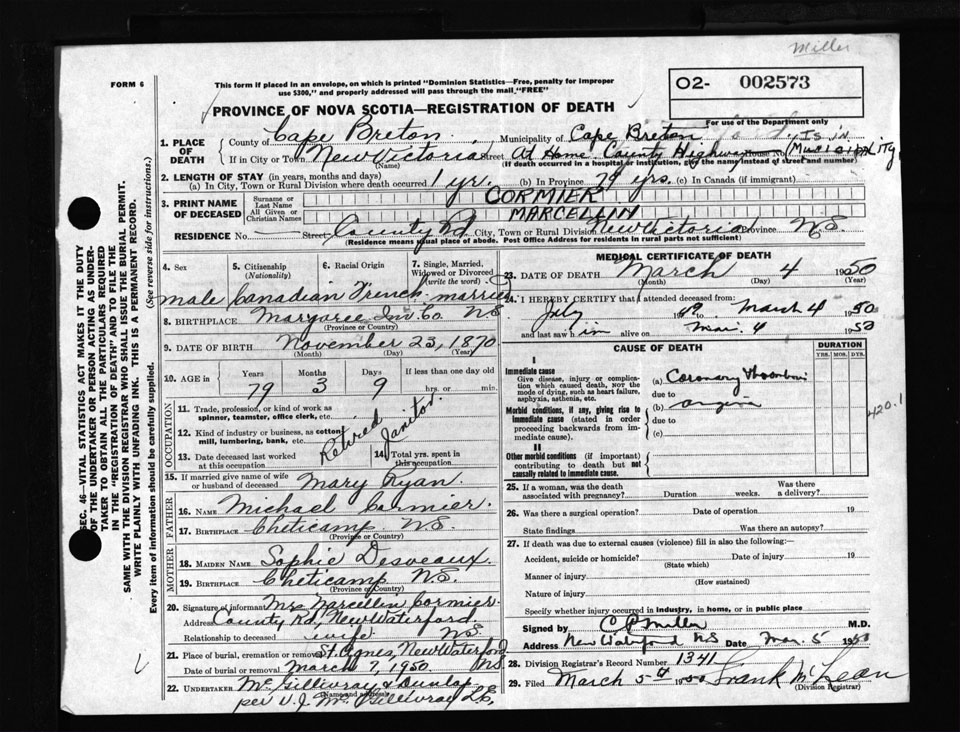 Miller
FORM 6
This form if placed in an envelope, on which is printed "Dominion Statistics—Free, penalty for improper
use $300," and properly addressed will pass through the mail "FREE"
O2- 002573
PROVINCE OF NOVA SCOTIA—REGISTRATION OF DEATH
For use of the Department only
1. PLACE OF DEATH
County of Cape Breton Municipality of Cape Breton
Is in
If in City or Town New Victoria Street At Home County Highway House No. (Municipality
(Name) (If death occurred in a hospital or institution, give the name instead of street and number)
2. LENGTH OF STAY (in years, months and days)
(a) In City, Town or Rural Division where death occurred 1 yr. (b) In Province 79 yrs. (c) In Canada (if immigrant)
3. PRINT NAME OF DECEASED
Surname or Last Name CORMIER
All Given or Christian Names MARCELLIN
RESIDENCE No. — Street County Rd City, Town or Rural Division New Victoria Province N.S.
(Residence means usual place of abode. Post Office Address for residents in rural parts not sufficient)
4. Sex 5. Citizenship (Nationality) 6. Racial Origin 7. Single, Married, Widowed or Divorced (write the word)
male Canadian French married
8. BIRTHPLACE Margaree Inv. Co. N.S.
(Province or Country)
9. DATE OF BIRTH November 23, 1870
(Month) (Day) (Year)
10. AGE in Years Months Days If less than one day old
79 3 9 hrs. or min.
OCCUPATION
11. Trade, profession, or kind of work as
spinner, teamster, office clerk, etc.
12. Kind of industry or business, as cotton
mill, lumbering, bank, etc.
Retired Janitor
13. Date deceased last worked
at this occupation
14. Total yrs. spent in
this occupation
15. If married give name of wife
or husband of deceased Mary Ryan
FATHER
16. NAME Michael Cormier
17. BIRTHPLACE Cheticamp N.S.
(Province or Country)
MOTHER
18. MAIDEN NAME Sophie Desveaux
19. BIRTHPLACE Cheticamp N.S.
(Province or Country)
20. Signature of informant Mrs Marcellin Cormier
Address County Rd, New Waterford
Relationship to deceased wife N.S.
21. Place of burial, cremation or removal St. Agnes, New Waterford
Date of burial or removal March 7, 1950. N.S.
22. UNDERTAKER McGillivray & Dunlap
(Name and address)
per V. J. McGillivray
MEDICAL CERTIFICATE OF DEATH
23. DATE OF DEATH March 4 1950
(Month) (Day) (Year)
24. I HEREBY CERTIFY that I attended deceased from:
July 1949 to March 4 1950
and last saw him alive on Mar. 4 1950
CAUSE OF DEATH
DURATION
YRS. MOS. DYS.
I
Immediate cause
Give disease, injury or complica-
tion which caused death, NOT the
mode of dying, such as heart failure,
asphyxia, asthenia, etc.
(a) Coronary Thrombosis
due to
Morbid conditions, if any, giving rise to
immediate cause (stated in order
proceeding backwards from im-
mediate cause).
(b) angina
due to
(c)
420.1
II
Other morbid conditions (if important)
contributing to death but not
causally related to immediate cause.
25. If a woman, was the death
associated with pregnancy? Duration weeks. Was there
a delivery?
26. Was there a surgical operation? Date of operation 19
State findings Was there an autopsy?
27. If death was due to external causes (violence) fill in also the following:—
Accident, suicide or homicide? Date of injury 19
(State which)
Manner of injury
(How sustained)
Nature of injury
Specify whether injury occurred in industry, in home, or in public place
Signed by C P Miller M.D.
Address New Waterford NS Date Mar. 5 1950
28. Division Registrar's Record Number 1341
29. Filed March 5th 1950 Frank McLean
(Division Registrar)
SEC. 46—VITAL STATISTICS ACT MAKES IT THE DUTY
OF THE UNDERTAKER OR PERSON ACTING AS UNDER-
TAKER TO OBTAIN ALL THE PARTICULARS REQUIRED
IN THE "REGISTRATION OF DEATH" AND TO FILE THE
SAME WITH THE DIVISION REGISTRAR WHO SHALL ISSUE THE BURIAL PERMIT.
WRITE PLAINLY WITH UNFADING INK. THIS IS A PERMANENT RECORD.
Every item of information should be carefully supplied. (See reverse side for instructions.)